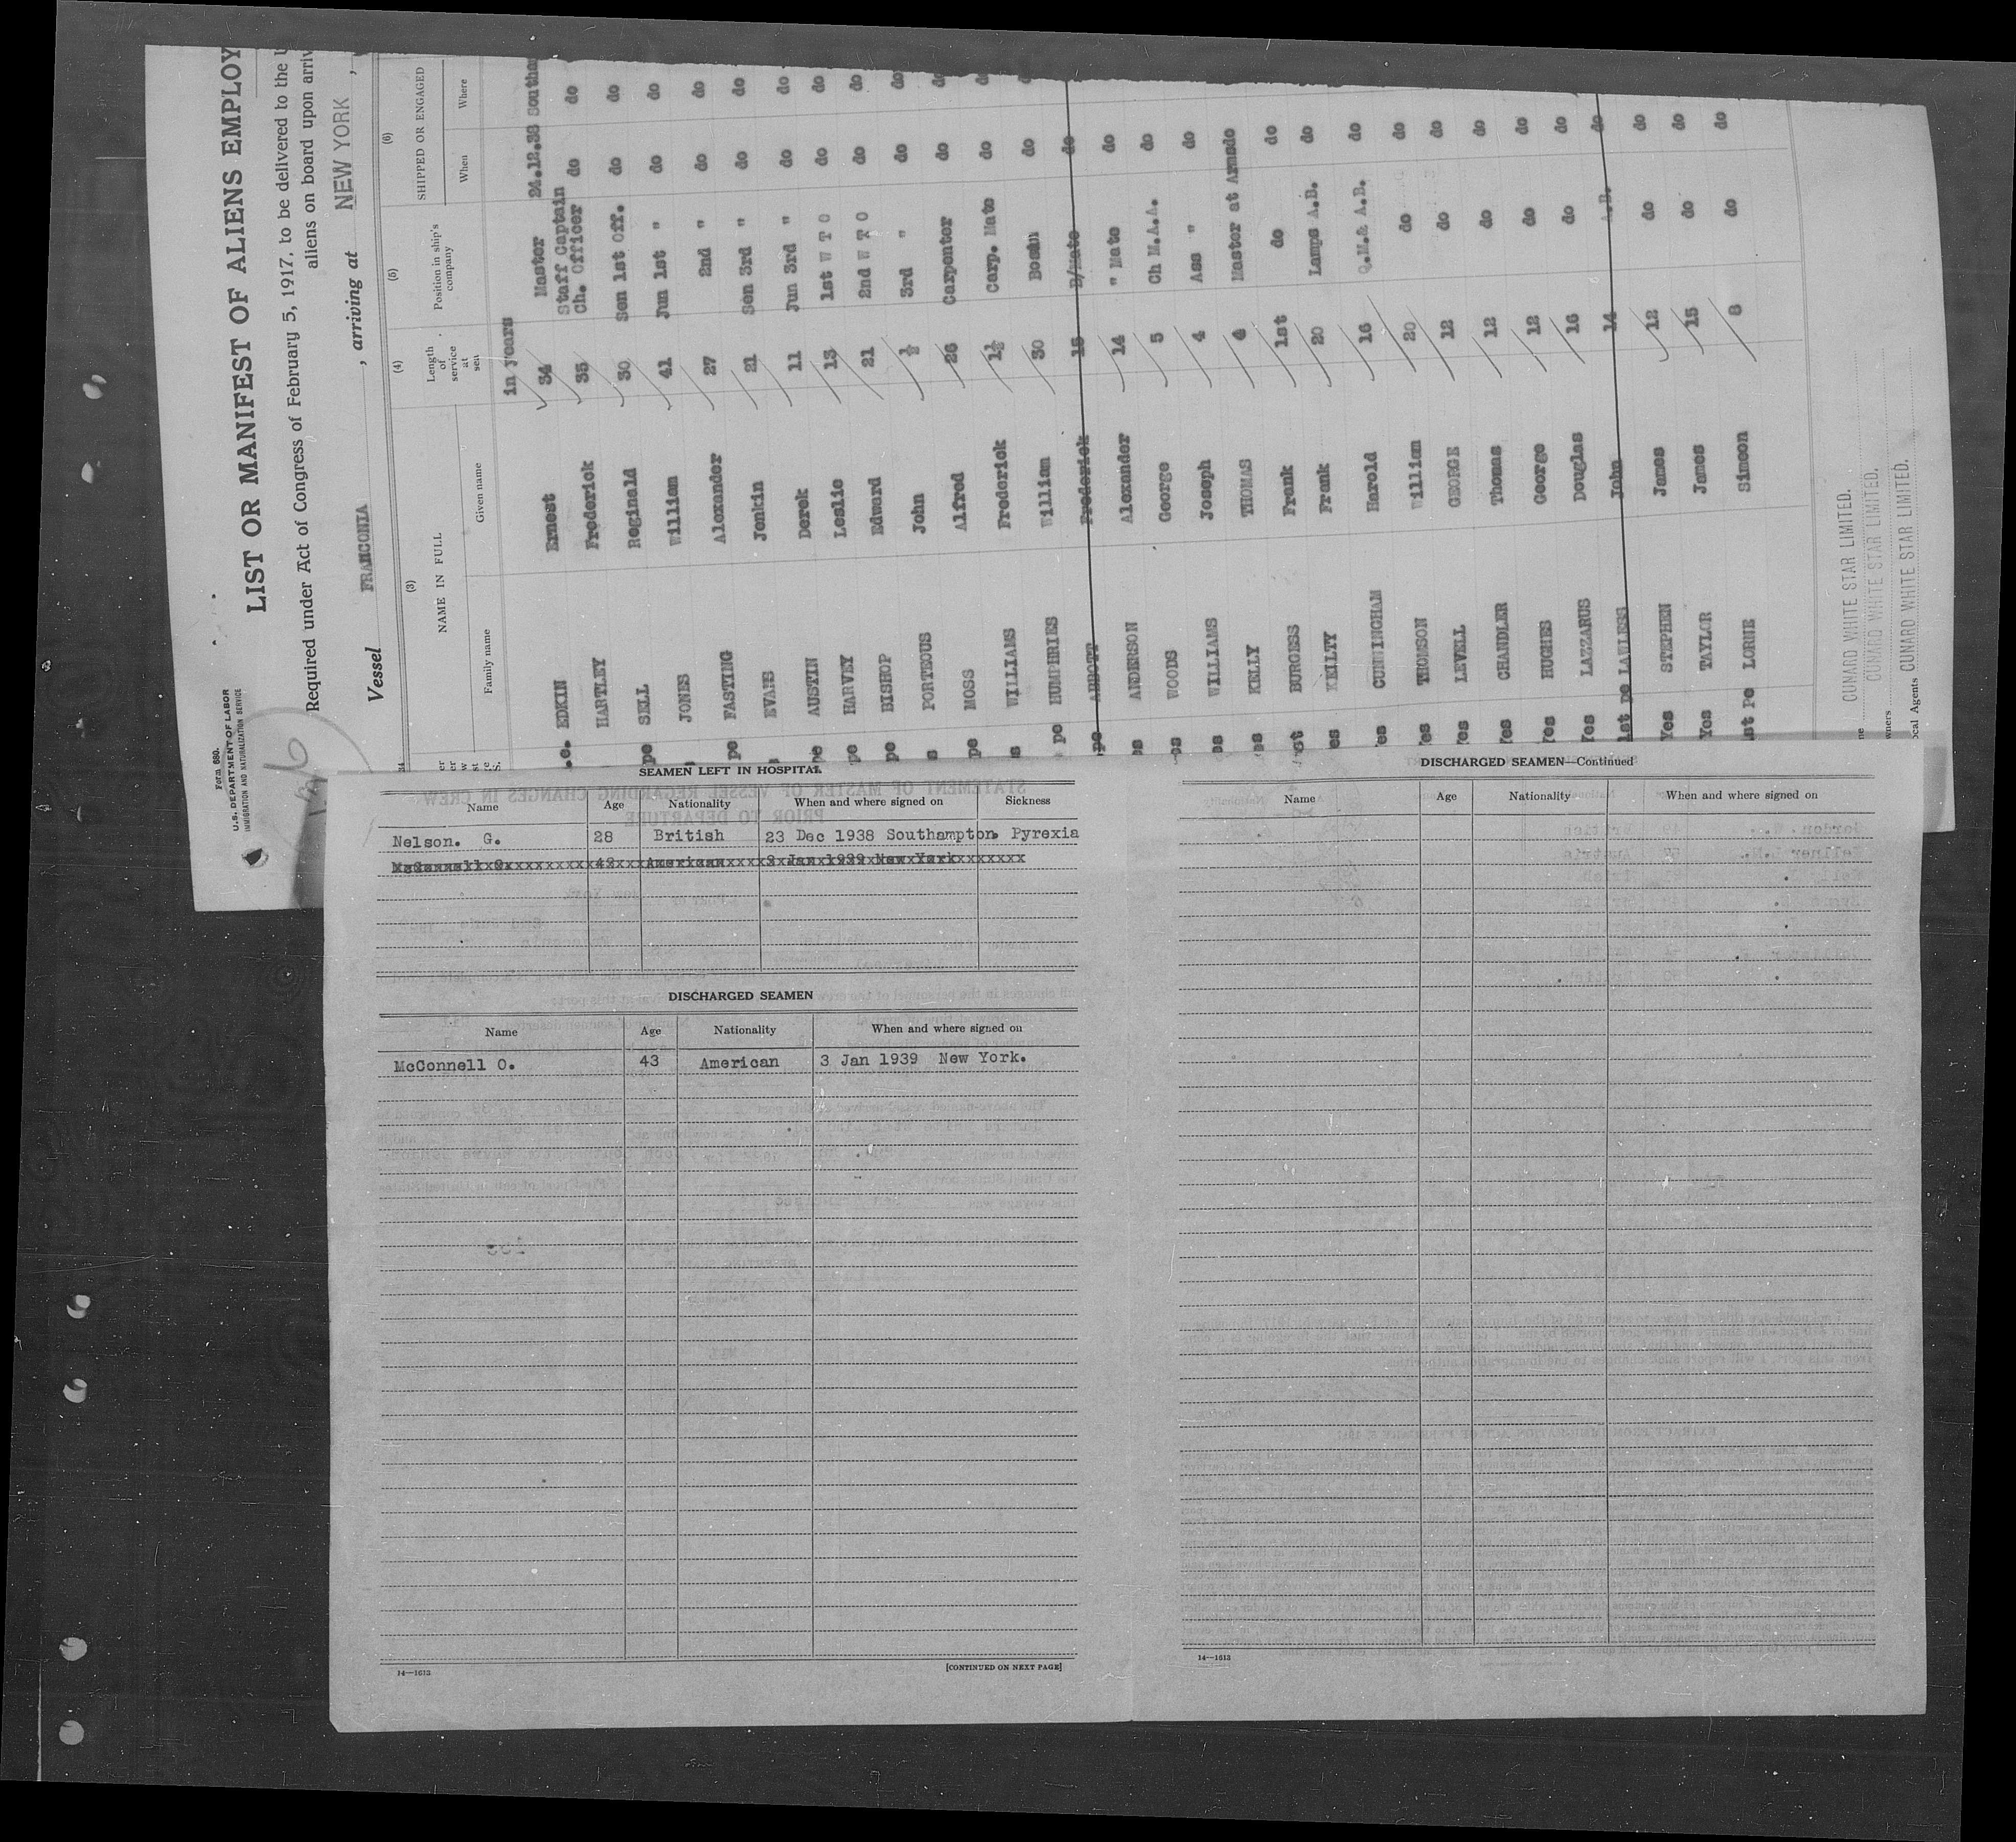 Form 680.
U.S. DEPARTMENT OF LABOR
IMMIGRATION AND NATURALIZATION SERVICE
LIST OR MANIFEST OF ALIENS EMPLOY
Required under Act of Congress of February 5, 1917, to be delivered to the
aliens on board upon arriv
Vessel FRANCONIA , arriving at NEW YORK ,
(3) (4) (5) (6)
NAME IN FULL Length of service at sea Position in ship's company SHIPPED OR ENGAGED
Family name Given name When Where
in years
EDKIN Ernest 34 Master 24.12.38 Southam
Staff Captain
HARTLEY Frederick 35 Ch. Officer do do
SELL Reginald 30 Sen 1st Off. do do
JONES William 41 Jun 1st " do do
pe FASTING Alexander 27 2nd " do do
EVANS Jenkin 21 Sen 3rd " do do
pe AUSTIN Derek 11 Jun 3rd " do do
pe HARVEY Leslie 13 1st W T O do do
pe BISHOP Edward 21 2nd W T O do do
s PORTEOUS John ½ 3rd " do do
pe MOSS Alfred 26 Carpenter do do
s WILLIAMS Frederick 1½ Carp. Mate do do
pe HUMPHRIES William 30 Bosun do
pe ABBOTT Frederick 15 B/Mate do
es ANDERSON Alexander 14 " Mate do
es WOODS George 5 Ch M.A.A. do
es WILLIAMS Joseph 4 Ass " do
es KELLY THOMAS Master at Arms do
st BURGESS Frank 1st do do
es KEILTY Frank 20 Lamps A.B. do
Yes CUNNINGHAM Harold 16 Q.M.& A.B. do
Yes THOMSON William 20 do do
Yes LEVELL GEORGE 12 do do
Yes CHANDLER Thomas 12 do do
Yes HUGHES George 12 do do
Yes LAZZARUS Douglas 16 do do
1st pe LAWLESS John 14 A.B. do
Yes STEPHEN James 12 do do
Yes TAYLOR James 15 do do
1st Pe LORNIE Simeon 8 do do
CUNARD WHITE STAR LIMITED.
wners CUNARD WHITE STAR LIMITED.
ocal Agents CUNARD WHITE STAR LIMITED.
SEAMEN LEFT IN HOSPITAL
Name Age Nationality When and where signed on Sickness
Nelson. G. 28 British 23 Dec 1938 Southampton. Pyrexia
McConnell O. 43 American 3 Jan 1939 New York
DISCHARGED SEAMEN
Name Age Nationality When and where signed on
McConnell O. 43 American 3 Jan 1939 New York.
14—1613 [CONTINUED ON NEXT PAGE]
DISCHARGED SEAMEN—Continued
Name Age Nationality When and where signed on
14—1613